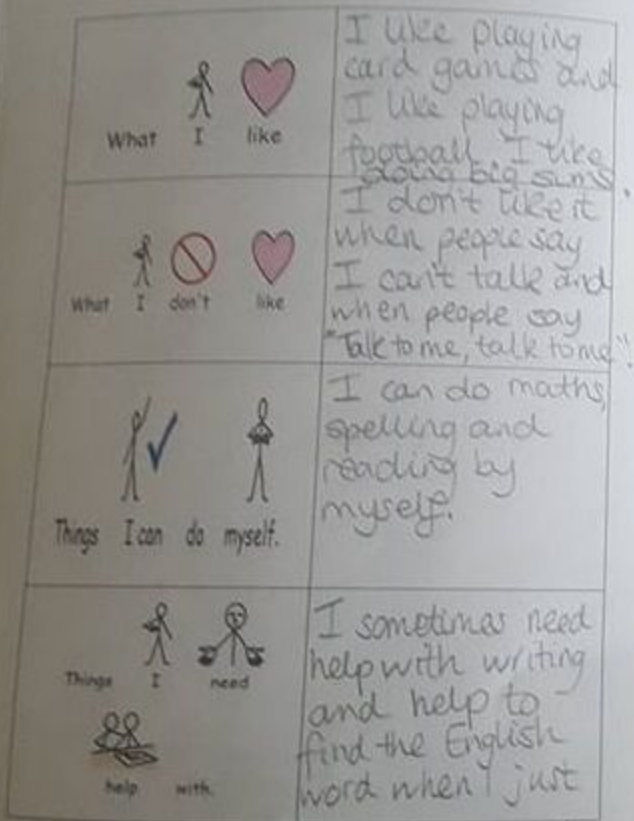 What I like
I like playing
card games and
I like playing
football. I like
doing big sums.
What I don't like
I don't like it
when people say
I can't talk and
when people say
"Talk to me, talk to me"!
Things I can do myself.
I can do maths,
spelling and
reading by
myself.
Things I need
help with.
I sometimes need
help with writing
and help to
find the English
word when I just